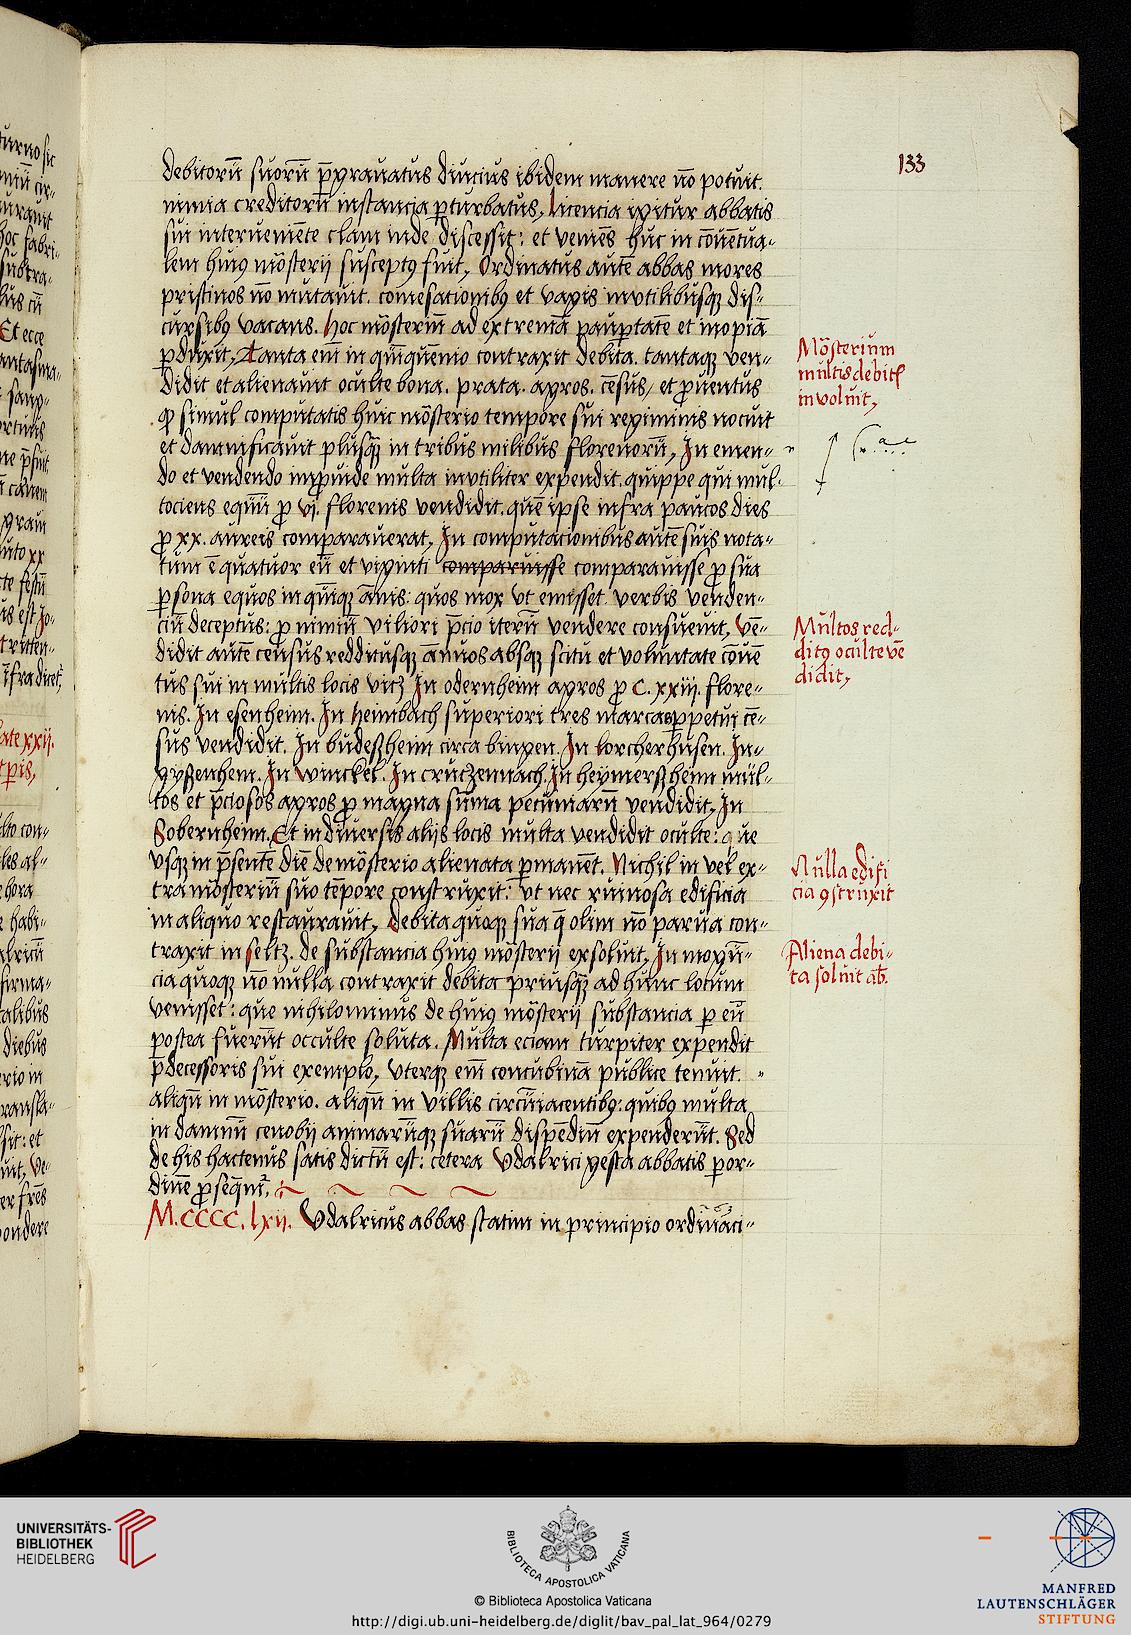 133
debitorū suorū p̄grauatus diucius ibidem manere nō potuit.
nimia creditorū instancia ꝑturbatus, licencia igitur abbatis
sui interueniēte clam inde discessit: et veniēs huc in cōuētua-
lem huiꝯ mōsterij susceptꝯ fuit, Ordinatus autē abbas mores
pristinos nō mutauit. comesationibꝯ et vagis invtilibusqꝫ dis-
cursibꝯ vacans. hoc mōsteriū ad extremā pauꝑtatē et inopiā
ꝑduxit, Tanta em̄ in quīquēnio contraxit debita. tantaqꝫ ven-
didit et alienauit oculte bona. prata. agros. cēsus, et ꝓuentus
ꝙ simul computatis huic mōsterio tempore sui regiminis nocuit
et damnificauit plusqꝫ̄ in tribus milibus florenorū, In emen-
do et vendendo inꝓuide multa invtiliter expendit. quippe qui mul-
tociens equū ꝓ vj. florenis vendidit. quē ipse infra paucos dies
ꝓ xx. aureis comparauerat, In computacionibus autē suis nota-
tum ē quatuor eū et viginti comparuisse comparauisse ꝓ sua
ꝑsona equos in quīqꝫ ānis: quos mox vt emisset verbis venden-
ciū deceptus: ꝓ nimiū viliori p̄cio iterū vendere consueuit, Vē-
didit autē census redditusqꝫ ānuos absqꝫ scitu et voluntate cōuē
tus sui in multis locis vicꝫ In odernheim agros ꝓ C. xxiij. flore-
nis. In esenheim. In heimbach superiori tres marcas ꝑpetui cē-
sus vendidit. In budeßheim circa bingen. In lorcherhusen. In-
gyßenhem. In winckel. In crutzennach. In heymerßheim mul-
tos et p̄ciosos agros ꝓ magna sūma pecuniarū vendidit, In
Sobernheim. Et in diuersis alijs locis multa vendidit oculte: que
vsqꝫ in p̄sentē diē de mōsterio alienata ꝑmanēt. Nichil in vel ex-
tra mōsteriū suo tēpore construxit: vt nec ruinosa edificia
in aliquo restaurauit, debita quoqꝫ sua q̄ olim nō parua con-
traxit in seltz. de substancia huiꝯ mōsterij exsoluit, In mogū-
cia quoqꝫ nō nulla contraxit debita priusqꝫ̄ ad hunc locum
venisset: que nihilominus de huiꝯ mōsterij substancia ꝑ eū
postea fuerūt occulte soluta. Multa eciam turpiter expendit
p̄decessoris sui exemplo, vterqꝫ em̄ concubinā publice tenuit.
aliqn̄ in mōsterio. aliqn̄ in villis circūiacentibꝯ: quibꝯ multa
in damnū cenobij animarūqꝫ suarū dispēdiū expenderūt. Sed
de his hactenus satis dictū est: cetera Vdalrici gesta abbatis ꝑ or-
dinē ꝓseqm̄r,
M.CCCC.lxij. Vdalricus abbas statim in principio ordināci-
Mōsterium
multis debitꝭ
inuoluit,
Multos red-
ditꝯ oculte vē
didit,
Nulla edifi
cia ꝯstruxit
Aliena debi-
ta soluit ab̄.
UNIVERSITÄTS-
BIBLIOTHEK
HEIDELBERG
BIBLIOTECA APOSTOLICA VATICANA
© Biblioteca Apostolica Vaticana
http://digi.ub.uni-heidelberg.de/diglit/bav_pal_lat_964/0279
MANFRED
LAUTENSCHLÄGER
STIFTUNG